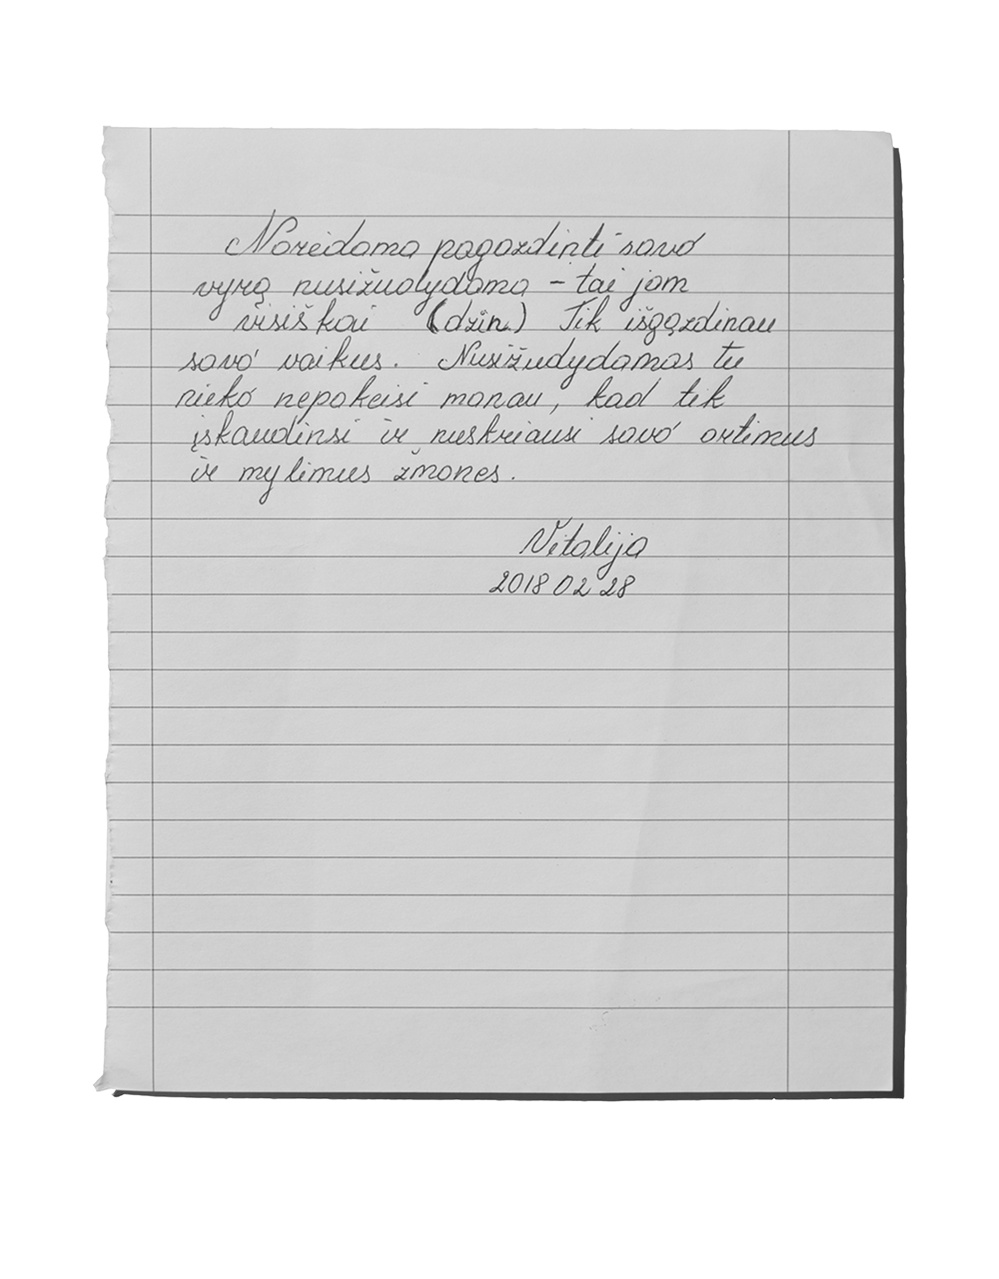 Norėdama pagazdinti savo
vyrą nusižudydama – tai jam
visiškai (dzin.) Tik išgązdinau
savo vaikus. Nusižudydamas tu
nieko nepakeisi manau, kad tik
įskaudinsi ir nuskriausi savo artimus
ir mylimus žmones.
Vitalija
2018 02 28